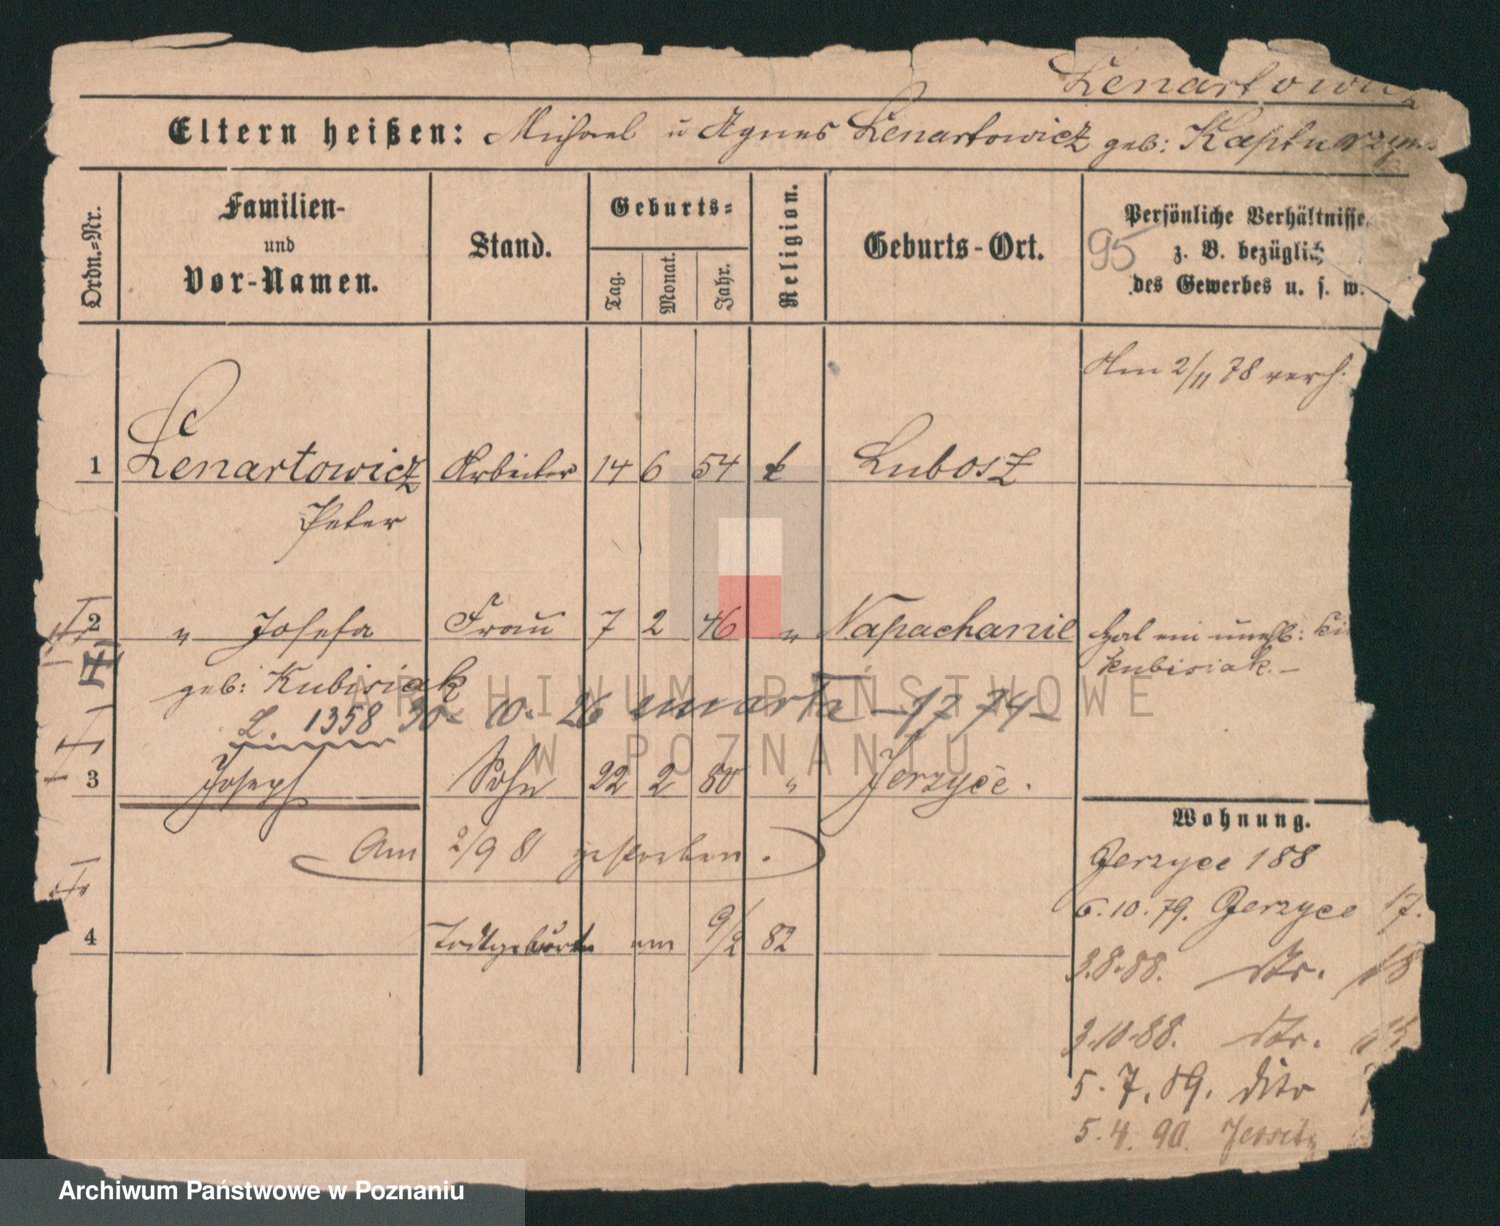 Lenartowicz
Eltern heißen: Michael u Agnes Lenartowicz geb: Kapturzyn
Ordn.=Nr.
Familien-
und
Vor-Namen.
Stand.
Geburts=
Tag.
Monat.
Jahr.
Religion.
Geburts-Ort.
Persönliche Verhältnisse
z. B. bezüglich
des Gewerbes u. s. w.
95
Am 2/11 78 verh:
1 Lenartowicz Arbeiter 14 6 54 k Lubosz
Peter
2 " Josefa Frau 7 2 46 " Napachanie Hat ein unehl: Ki
geb: Kubisiak Kubisiak.
L. 1358
3 Joseph Sohn 22 2 80 " Jerzyce.
Am 2/9 81 gestorben.
4 Todtgeburt am 9/2 82
Wohnung.
Jerzyce 188
6.10.79. Jerzyce 17.
3.8.88. dto. 18
3.10.88. dto.
5.7.89. dito
5.4.90. Jersitz
ARCHIWUM PAŃSTWOWE
W POZNANIU
Archiwum Państwowe w Poznaniu